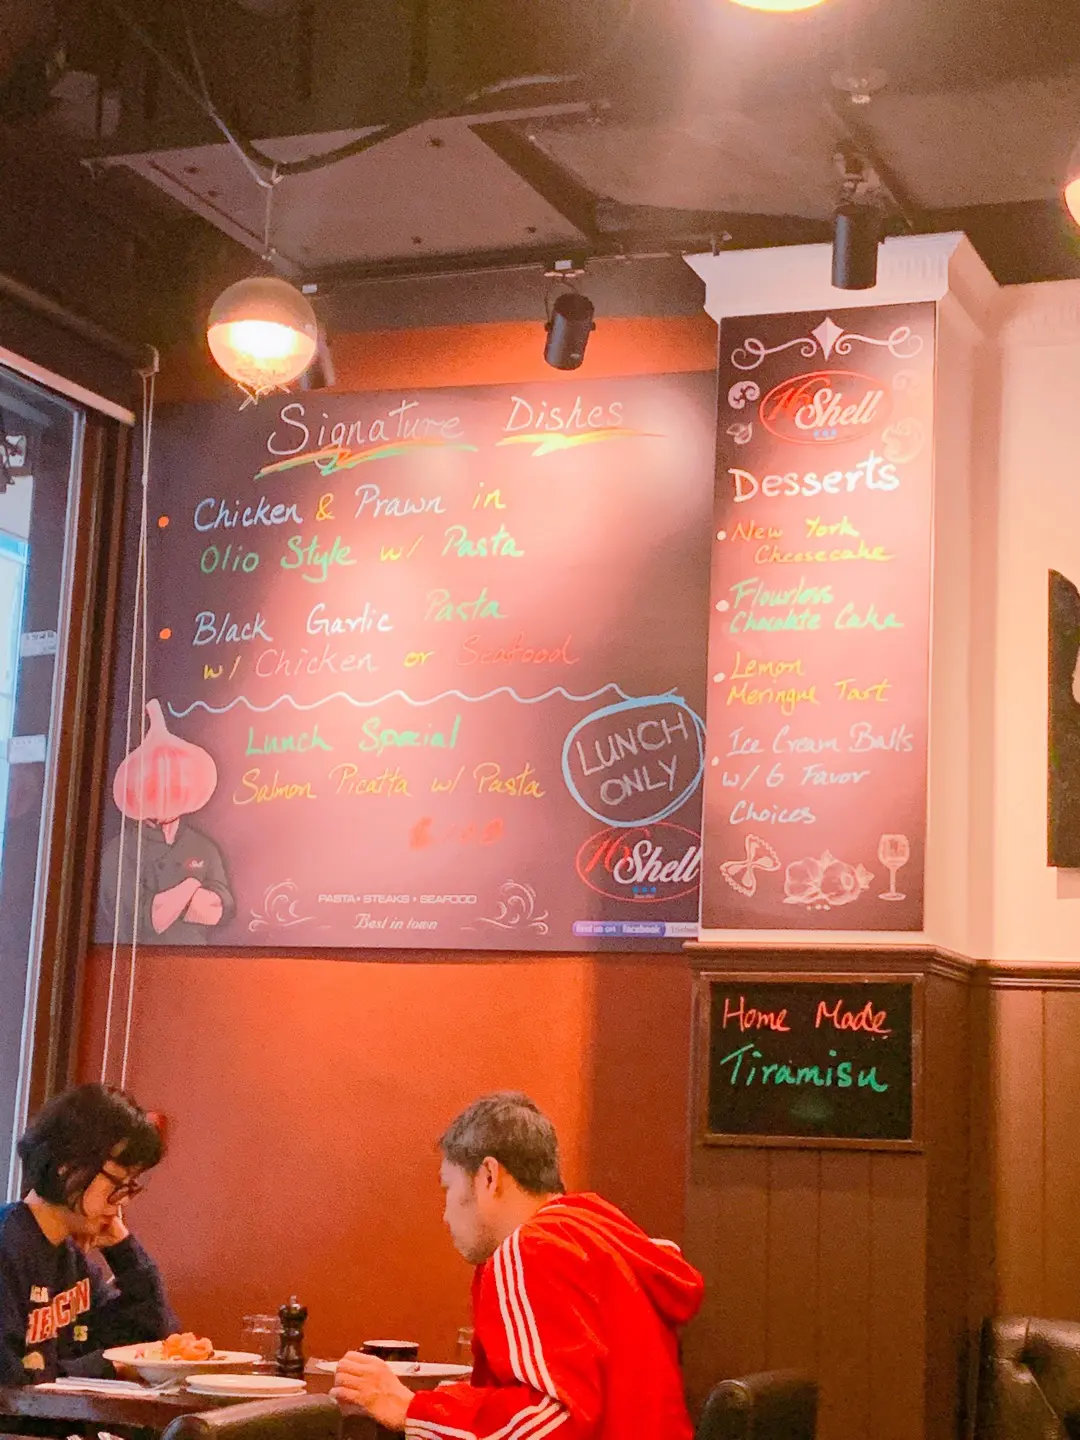 Signature Dishes
• Chicken & Prawn in
Olio Style w/ Pasta
• Black Garlic Pasta
w/ Chicken or Seafood
Lunch Special
Salmon Picatta w/ Pasta
LUNCH
ONLY
16 Shell
PASTA • STEAKS • SEAFOOD
Best in town
find us on facebook
16 Shell
Desserts
• New York
Cheesecake
• Flourless
Chocolate Cake
• Lemon
Meringue Tart
• Ice Cream Balls
w/ 6 Favor
Choices
Home Made
Tiramisu